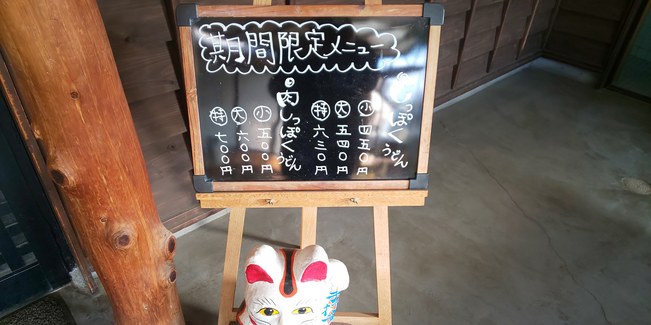 期間限定メニュー
しっぽくうどん
小 四五〇円
大 五四〇円
特 六三〇円
・肉しっぽくうどん
小 五〇〇円
大 六〇〇円
特 七〇〇円